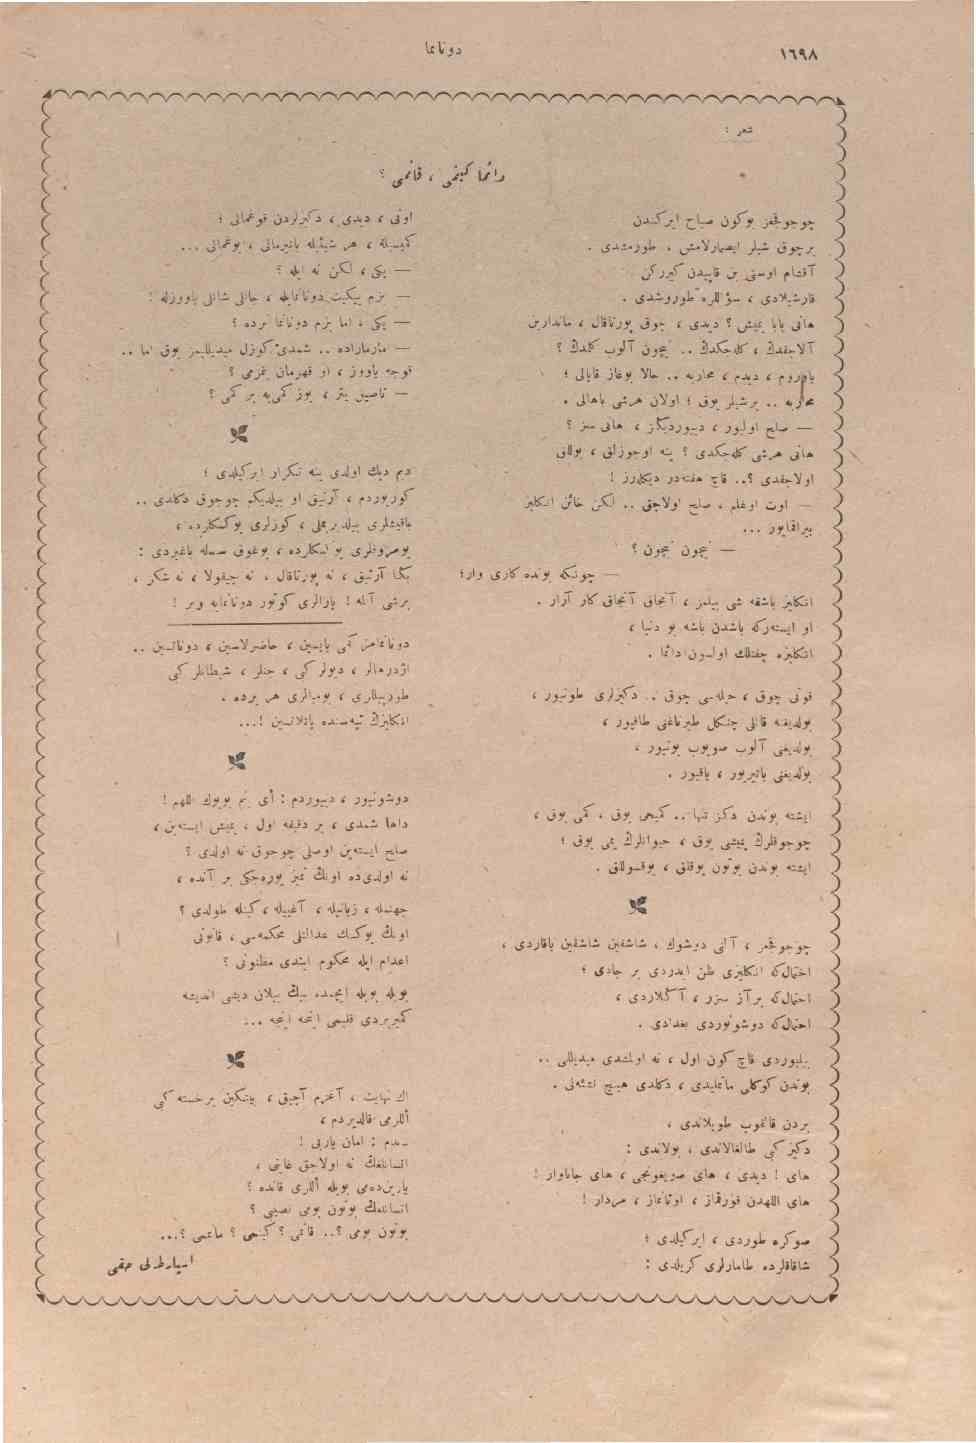 ١٦٩٨
دونانما
شعر :
دائما كينمى ، قانمى ؟
چوجوقجغز بوكون صباح ايركندن
برچوق شيلر ايصمارلامش ، طورمشدى .
آقشام اوستى بن قاپيدن كيرركن
قارشيلادى ، سؤاللره طوروشدى .
هانى بابا يميش ؟ ديدى ، چوق پورتاقال ، ماندارين
آلاجقدك ، كله‌جكدك .. نيچون آلوب كلمدك ؟
ياوروم ، ديدم ، محاربه .. حالا بوغاز قاپالى ؛
محاربه .. برشيلر يوق ؛ اولان هرشى باهالى .
— صلح اوليور ، دييوردیكز ، هانى سز ؟
هانى هرشى كله‌جكدى ؟ ينه اوجوزلق ، بوللق
اولاجقدى ؟.. قاچ هفته‌در ديكلرز !
— اوت اوغلم ، صلح اولاجق .. لكن خائن انكليز
بيراقمايور ...
— نيچون نيچون ؟
— چونكه بونده كارى وار؛
انكليز باشقه شى بيلمز ، آنجاق آنجاق كار آرار .
او ايسترکه باشدن باشه بو دنيا ،
انكليزه چفتلك اولسون دائما .
قوتى چوق ، حيله‌سى چوق .. دكيزلرى طوتيور ،
بولديغنه قانلى چنكل طيرناغنى طاقيور ،
بولديغنى آلوب صويوب يوتيور ،
بولديغنى باتيريور ، ياقيور .
ايشته بوندن دكز تنها .. كميجى يوق ، كمى يوق ،
چوجوقلرك يميشى يوق ، حيوانلرك يمى يوق ؛
ايشته بوندن بوتون يوقلق ، يوقسوللق .
چوجوقجغز ، آلنى دوشوك ، شاشقين شاشقين باقاردى ،
احتمال‌كه انكليزى ظن ايدردى بر جادى ؛
احتمال‌كه برآز سزر ، آكلاردى ،
احتمال‌كه دوشونوردى بغدادى .
بيليوردى قاچ كون اول ، نه اولمشدى ميديللى ..
بوندن كوكلى ماتملیدى ، دكلدى هيچ نشئه‌لى .
بردن قانبوب طوپلاندى ،
دكيز كبى طالغالاندى ، بولاندى :
هاى ! ديدى ، هاى صويغونجى ، هاى جاناوار !
هاى اللهدن قورقماز ، اوتانماز ، مردار !
صوكره طوردى ، ايركيلدى ؛
شاقاقلرده طامارلرى كريلدى :
اونى ، ديدى ، دكيزلردن قوغمالى ؛
كميسيله ، هر شيئيله باتيرمالى ، بوغمالى ...
— پكى ، لكن نه ايله ؟
— بزم بيكيت دونانمايله ، جانلى شانلى ياووزله !
— پكى ، اما بزم دونانما نرده ؟
— مارماراده .. شمدى كوزل ميديلليمز يوق اما ..
قوجه ياووز ، او قهرمان يمزمى ؟
ديم ديك اولدى ينه تكرار ايركيلدى ؛
كوريوردم ، آرتيق او بيلديكم چوجوق دكلدى ..
باقيشلرى ييلديريملى ، كوزلرى يوكسكلرده ،
يومروقلرى بو ليكلرده ، بوغوق سسله باغيردى :
بكا آرتيق ، نه پورتاقال ، نه چيقولا ، نه شكر ،
برشى آلمه ! پارالرى كوتور دونانمايه وير !
دونانمامز كمى ياپسين ، حاضرلاسين ، دوناتسين ..
اژدرهالر ، ديولر كبى ، جنلر ، شيطانلر كبى
طورپيللرى ، بومبالرى هر يرده .
انكليزك تپه‌سنده پاتلاتسين !...
دوشونيور ، دييوردم : أى بنم بويوك اللهم !
داها شمدى ، بر دقيقه اول ، يميش ايسته‌ين ،
صلح ايسته‌ين اوصلى چوجوق نه اولدى ؟
نه اولدى‌ده اونك تميز يوره‌جكى بر آنده ،
جهنمله ، زبانيله ، آغييله ، كينله طولدى ؟
اونك يوكسك عدالتلى محكمه‌سى ، قانونى
اعدام ايله محكوم ايتدى مظنونى ؟
بويله بويله ايچمده بيك ييلان ديشى انديشه
كميريردى قلبمى اينجه اينجه ...
اك نهايت ، آغزم آچيق ، بيتكين برخسته كبى
أللرمى قالديردم ،
ـدم : امان ياربى !
انسانلغك نه اولاجق غاينى ،
يارين‌ده‌مى بويله أللرى قانده ؟
انسانلغك بوتون بومى نصيبى ؟
بوتون بومى ؟.. قانمى ؟ كينمى ؟ ماتممى ؟...
اسپارطه‌لى حقى